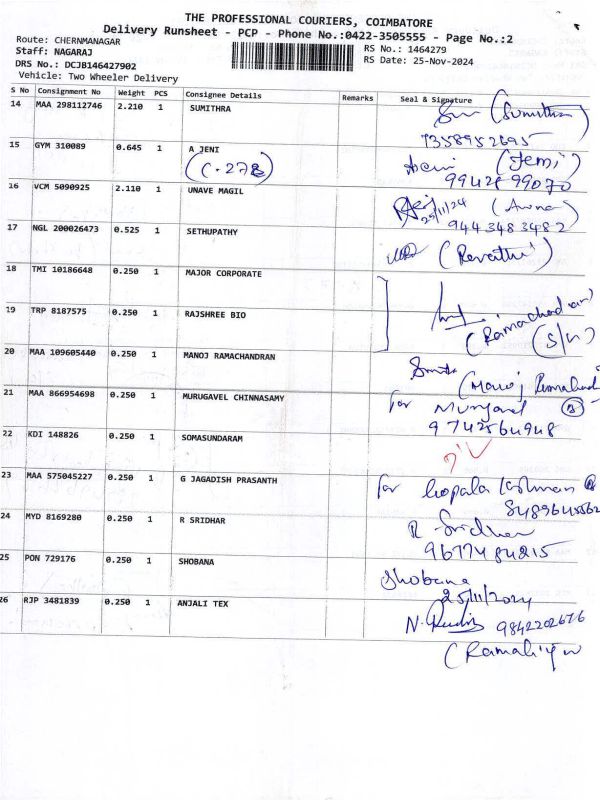 THE PROFESSIONAL COURIERS, COIMBATORE
Delivery Runsheet - PCP - Phone No.:0422-3505555 - Page No.:2
Route: CHERNMANAGAR
RS No.: 1464279
Staff: NAGARAJ
RS Date: 25-Nov-2024
DRS No.: DCJB146427902
Vehicle: Two Wheeler Delivery
S No Consignment No Weight PCS Consignee Details Remarks Seal & Signature
14 MAA 298112746 2.210 1 SUMITHRA (Sumithra)
7358952695
15 GYM 310089 0.645 1 A JENI (Jemi)
(C-27B) 99426 99070
16 VCM 5090925 2.110 1 UNAVE MAGIL
25/11/24
9443483482
17 NGL 200026473 0.525 1 SETHUPATHY (Revathi)
18 TMI 10186648 0.250 1 MAJOR CORPORATE
19 TRP 8187575 0.250 1 RAJSHREE BIO
(S/n)
20 MAA 109605440 0.250 1 MANOJ RAMACHANDRAN (Manoj
21 MAA 866954698 0.250 1 MURUGAVEL CHINNASAMY for
9742564948
22 KDI 148826 0.250 1 SOMASUNDARAM
23 MAA 575045227 0.250 1 G JAGADISH PRASANTH for Gopala
24 MYD 8169280 0.250 1 R SRIDHAR R Sridhar
9677484215
25 PON 729176 0.250 1 SHOBANA Shobana
25/11/2024
26 RJP 3481839 0.250 1 ANJALI TEX 9842202676